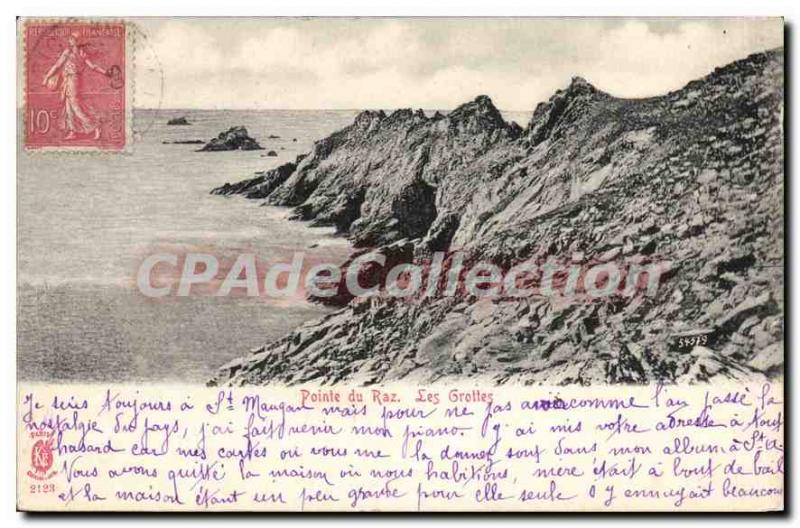 REPUBLIQUE FRANÇAISE
10c
CPA de Collection
54579
Pointe du Raz. Les Grottes
Je suis toujours à St Maugan mais pour ne pas avoir comme l'an passé la
nostalgie du pays, j'ai fait venir mon piano. J'ai mis votre adresse à tout
hasard car mes cartes où vous me la donnez sont dans mon album à St
Vous avons quitté la maison où nous habitions, mère était à bout de bail
et la maison étant un peu grande pour elle seule s'y ennuyait beaucoup
PARIS
2123